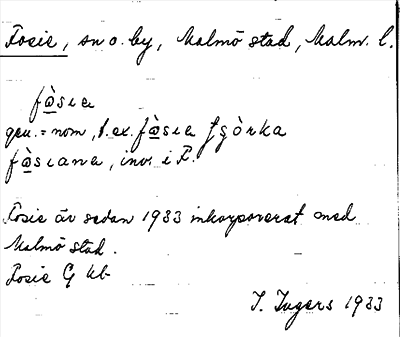 Fosie, sn o. by, Malmö stad, Malm. l.
fòsıe
gen. = nom, t.ex. fòsıe
fòsıana, inv. i F.
Fosie är sedan 1933 inkorporerat med
Malmö stad.
Fosie G kb
I. Ingers 1933